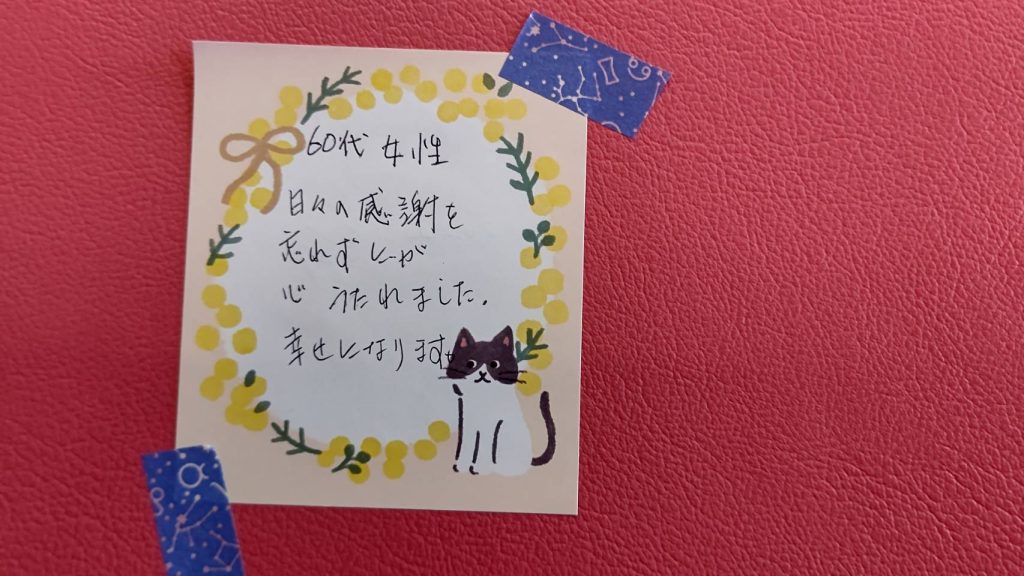 60代 女性
日々の感謝を
忘れずに…が
心 うたれました。
幸せになります。